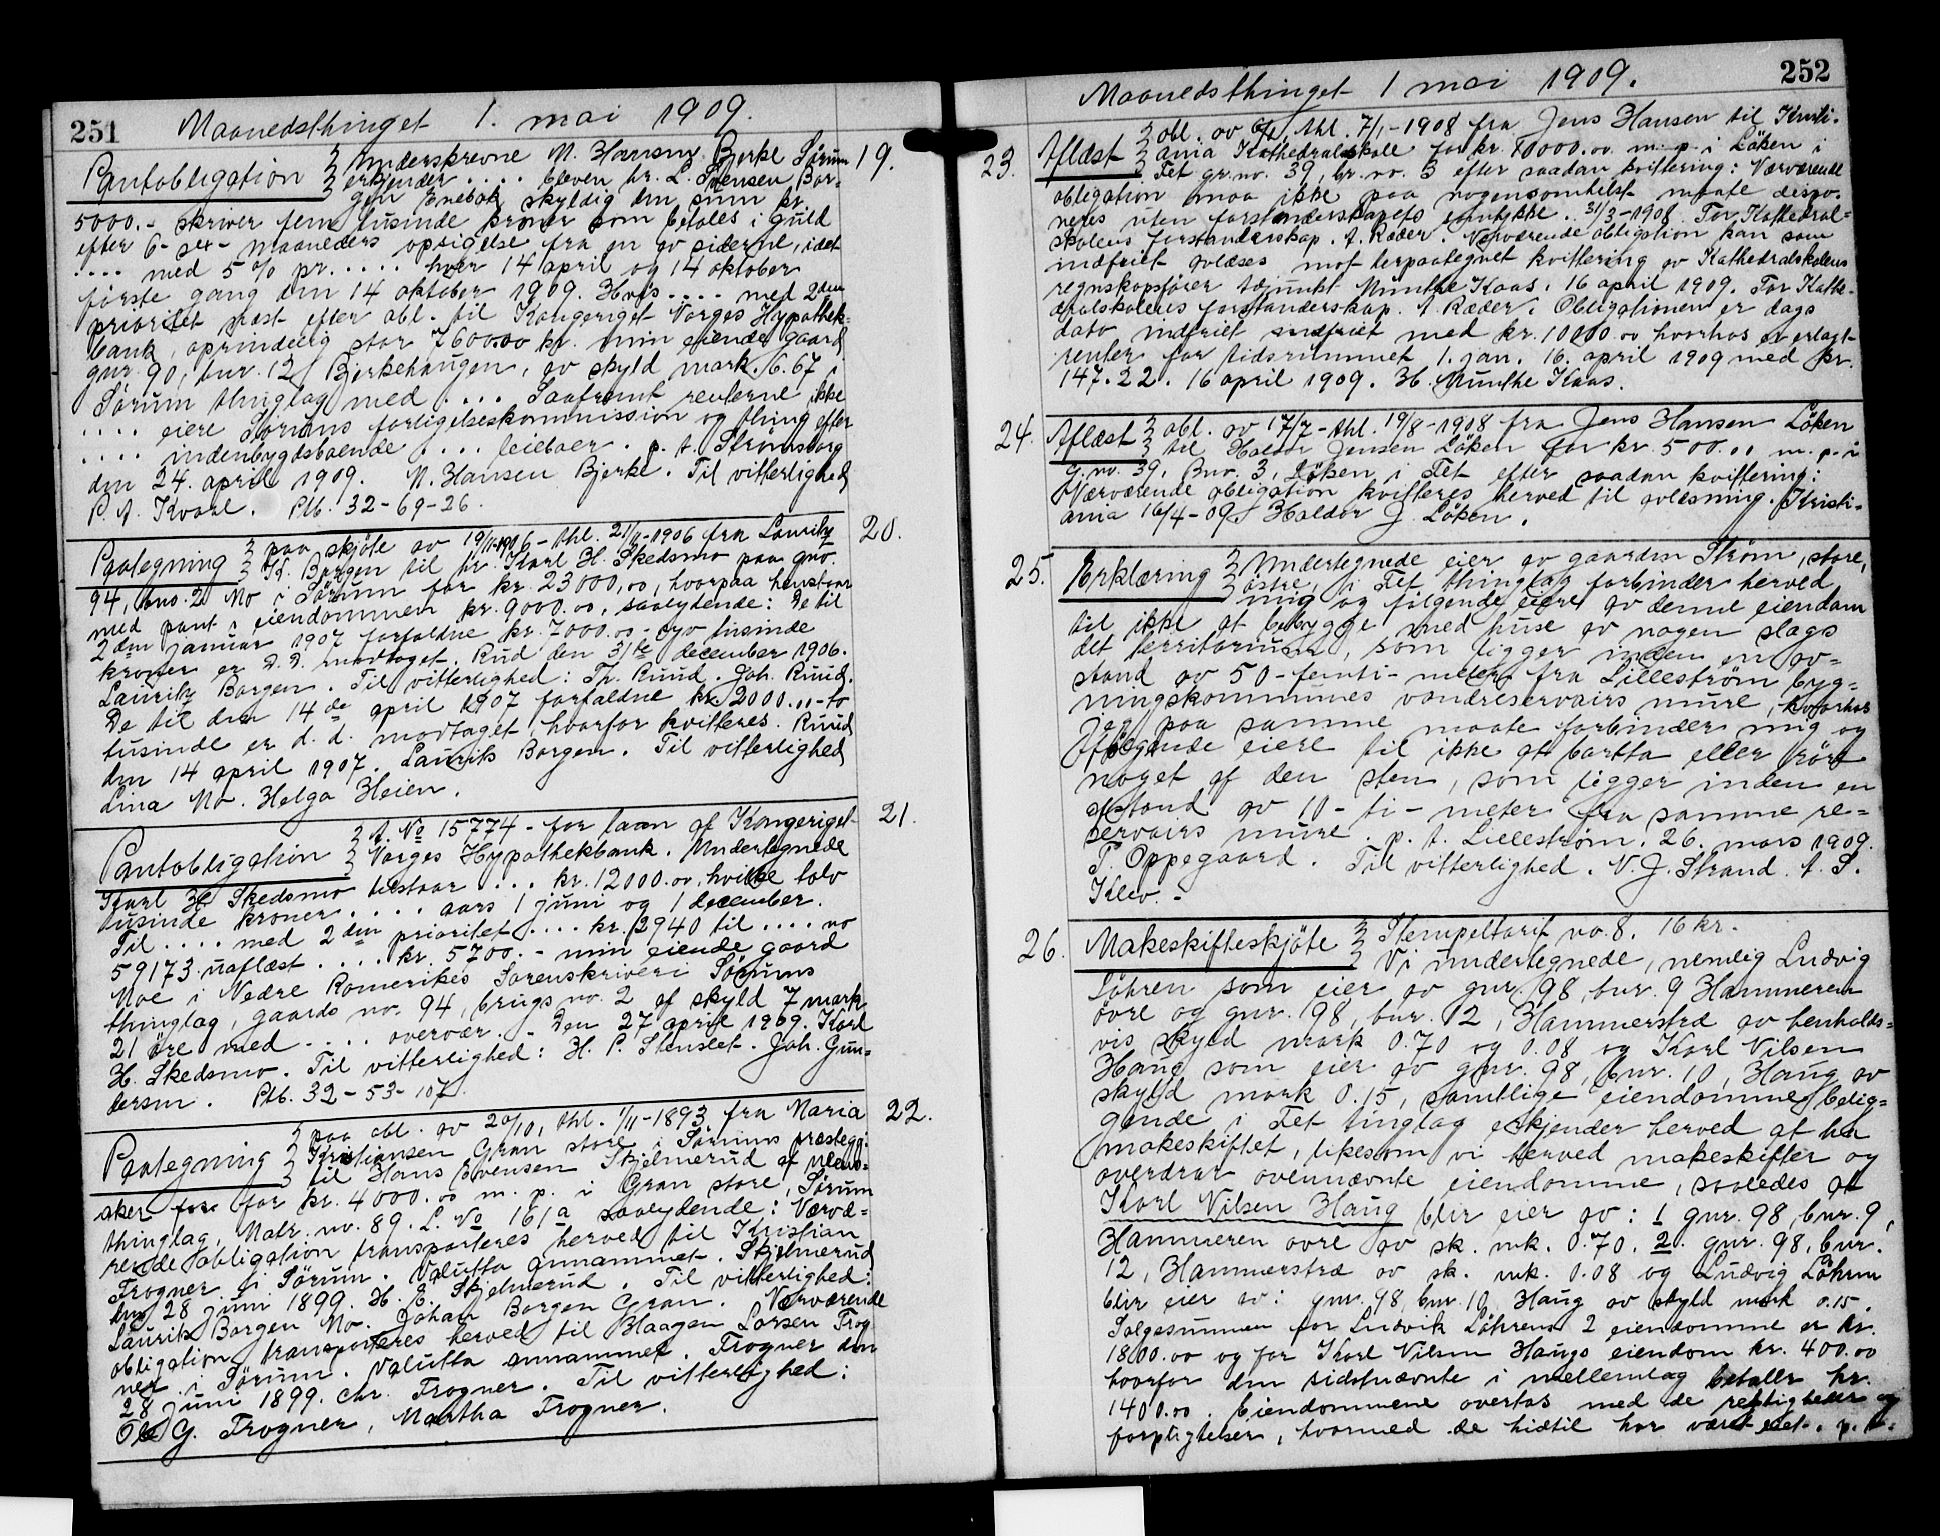 251
Maanedsthinget 1. mai 1909.
Pantobligation Underskrevne N. Hansen Bjerke Sörum 19.
erkjender .... bleven hr. L. Svensen Bor-
gen Enebak skyldig den sum kr.
5000.- skriver fem tusinde kroner som betales i guld
efter 6- sex- maaneders opsigelse fra en av siderne, idet
.... med 5 % pr. .... hver 14 april og 14 oktober
förste gang den 14 oktober 1909. Hvis .... med 2den
prioritet næst efter obl. til Kongeriget Norges Hypothek-
bank, oprindelig stor 7600.00 kr. min eiende gaard
gnr. 90, bnr. 12 Bjerkehaugen, av skyld mark. 6.67 i
Sörum thinglag med .... Saafremt renterne ikke
.... eiere Sörums forligelseskommission og thing efter
.... indenbygdsboende .... leieboer. p. t. Strömsborg
den 24. april 1909. N. Hansen Bjerke. Til vitterlighed
P. A. Kvaal. Ptb. 32-69-26.
Paategning paa skjöte av 19/11-1906 - thl. 21/11-1906 fra Lauritz 20.
K. Borgen til hr. Karl H. Skedsmo paa gno.
94, bno. 2 Mo i Sörum for kr. 23000,00, hvorpaa henstaar
med pant i eiendommen kr. 9000.00, saalydende: De til
2den januar 1907 forfaldne kr. 7000.00 - syv tusinde
kroner er d. d. modtaget. Rud den 31te december 1906.
Lauritz Borgen. Til vitterlighed: Th. Ruud. Joh. Ruud.
De til den 14de april 1907 forfaldne kr. 2000.00 - to
tusinde er d. d. modtaget, hvorfor kvitteres. Ruud
den 14 april 1907. Laurits Borgen. Til vitterlighed
Lina Mo. Helga Heien.
Pantobligation A. No 15774 - for laan af Kongeriget 21.
Norges Hypothekbank. Undertegnede
Karl H. Skedsmo tilstaar ... kr. 12000.00, hvilke tolv
tusinde kroner .... aars 1 juni og 1 december.
Til .... med 2den prioritet .... kr. 2940 til .... no
59173 uaflæst .... kr. 5700.- min eiende gaard
Moe i Nedre Romerikes Sorenskriveri Sörums
thinglag, gaards no. 94, brugs no. 2 af skyld 7 mark
21 öre med .... overvær. - Den 27 april 1909. Karl
H. Skedsmo. Til vitterlighed: H. P. Stenslet. Joh. Gun-
dersen. Ptb. 32-53-107.
Paategning paa obl. av 20/10, thl. 1/11-1893 fra Maria 22.
Kristiansen Gran store i Sörums præstegj.
til Hans Evensen Skjelmerud af
aker for for kr. 4000.00 m. p. i Gran store, Sörum
thinglag, Matr. no. 89. L. No 161a saalydende: Nærvæ-
rende obligation transporteres herved til Kristian
Frogner i Sörum. Valutta annammet. Skjelmerud
den 28 juni 1899. H. E. Skjelmerud. Til vitterlighed:
Laurits Borgen Mo. Johan Borgen Gran. Nærværende
obligation transporteres herved til Haagen Larsen Frog-
ner i Sörum. Valutta annammet. Frogner den
28 juni 1899. Chr. Frogner. Til vitterlighed:
Ole G. Frogner, Martha Frogner.
252
Maanedsthinget 1 mai 1909.
23. Aflæst obl. av thl. 7/1-1908 fra Jens Hansen til Kristi-
ania Kathedralskole for kr. 10000.00 m. p. i Löken i
Fet gr. no. 39, br. no. 3 efter saadan kvittering: Nærværende
obligation maa ikke paa nogensomhelst maate dispo-
neres uten forstanderskapets samtykke. 31/3-1908. For Kathedral-
skolens forstanderskap. A. Ræder. Nærværende obligation kan som
indfriet avlæses mot herpaategnet kvittering av Kathedralskolens
regnskapsförer adjunkt Munthe Kaas. 16 april 1909. For Kathe-
dralskolens forstanderskap. A. Ræder. Obligationen er dags
dato indfriet indfriet med kr. 10000.00 hvorhos er erlagt
renter for tidsrummet 1. jan. 16. april 1909 med kr.
147.22. 16 april 1909. H. Munthe Kaas.
24. Aflæst obl. av 17/7 - thl. 19/8-1908 fra Jens Hansen Löken
til Haldor Jensen Löken for kr. 500.00 m. p. i
G. no. 39, Bnr. 3, Löken i Fet efter saadan kvittering:
Nærværende obligation kvitteres herved til avlæsning. Kristi-
ania 16/4-09. Haldor J. Löken.
25. Erklæring Undertegnede eier av gaarden Ström, store,
östre, i Fet thinglag forbinder herved
mig og fölgende eiere av denne eiendom
til ikke at bebygge med huse av nogen slags
det territorium, som ligger inden en av-
stand av 50 - femti - meter fra Lilleström byg-
ningskommunes vandreservoirs mure, hvorhos
jeg paa samme maate forbinder mig og
fölgende eiere til ikke at bortta eller röre
noget af den sten, som ligger inden en
afstand av 10 - ti - meter fra samme re-
servoirs mure. p. t. Lilleström. 26. mars 1909.
P. Oppegaard. Til vitterlighed. N. J. Strand. A. S.
Klev. -
26. Makeskifteskjöte Stempeltarif no. 8. 16 kr.
Vi undertegnede, nemlig Ludvig
Löhren som eier av gnr. 98, bnr. 9 Hammeren
övre og gnr. 98, bnr. 12, Hammerstræ av henholds-
vis skyld mark 0.70 og 0.08 og Karl Nilsen
Haug som eier av gnr. 98, bnr. 10, Haug av
skyld mark 0.15, samtlige eiendomme belig-
gende i Fet tinglag erkjender herved at ha
makeskiftet, likesom vi herved makeskifter og
overdrar ovennævnte eiendomme, saaledes at
Karl Nilsen Haug blir eier av: 1 gnr. 98, bnr. 9,
Hammeren ovre av sk. mk. 0.70. 2. gnr. 98, bnr.
12, Hammerstræ av sk. mk. 0.08 og Ludvig Löhren
blir eier av: gnr. 98, bnr. 10, Haug av skyld mark 0.15.
Salgssummen for Ludvik Löhrens 2 eiendomme er kr.
1800.00 og for Karl Nilsen Haugs eiendom kr. 400.00
hvorfor den sidstnævnte i mellemlag betaler kr.
1400.00. Eiendommene overtas med de rettigheter og
forpligtelser, hvormed de hidtil har været eiet. p. t.